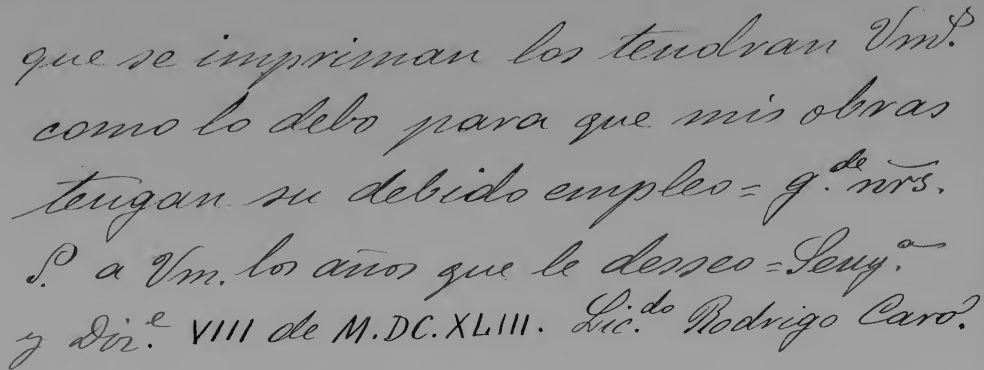 que se impriman los tendran Vmd.
como lo debo para que mis obras
tengan su debido empleo = g.de nrs.
S. a Vm. los años que le desseo =
y Diz.e VIII de M.DC.XLIII. Lic.do Rodrigo Caro.